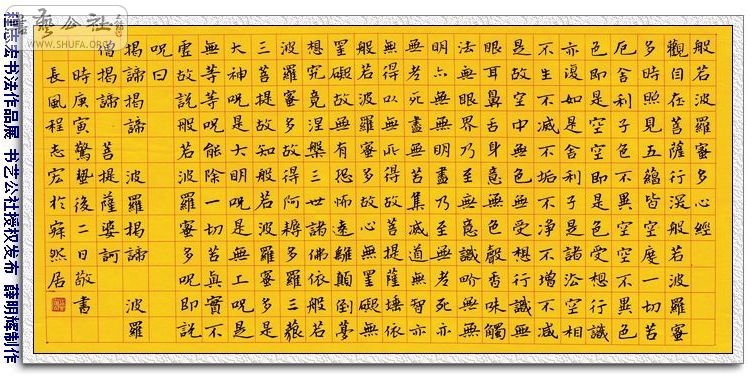 般若波羅蜜多心經
觀自在菩薩行深般若波羅蜜
多時照見五緼皆空度一切苦
厄舍利子色不異空空不異色
色即是空空即是色受想行識
亦復如是舍利子是諸法空相
不生不滅不垢不淨不增不減
是故空中無色無受想行識無
眼耳鼻舌身意無色聲香味觸
法無眼界乃至無意識界無無
明亦無無明盡乃至無老死亦
無老死盡無苦集滅道無智亦
無得以無所得故菩提薩埵依
般若波羅蜜多故心無罣礙無
罣礙故無有恐怖遠離顛倒夢
想究竟涅槃三世諸佛依般若
波羅蜜多故得阿耨多羅三藐
三菩提故知般若波羅蜜多是
大神呪是大明呪是無上呪是
無等等呪能除一切苦真實不
虛故說般若波羅蜜多呪即說
呪曰
揭諦揭諦 波羅揭諦 波羅
僧揭諦 菩提薩婆訶
時庚寅驚蟄後二日敬書
長風程志宏於寂然居
書藝公社
WWW.SHUFA.ORG
程志宏书法作品展 书艺公社授权发布 薛明辉制作